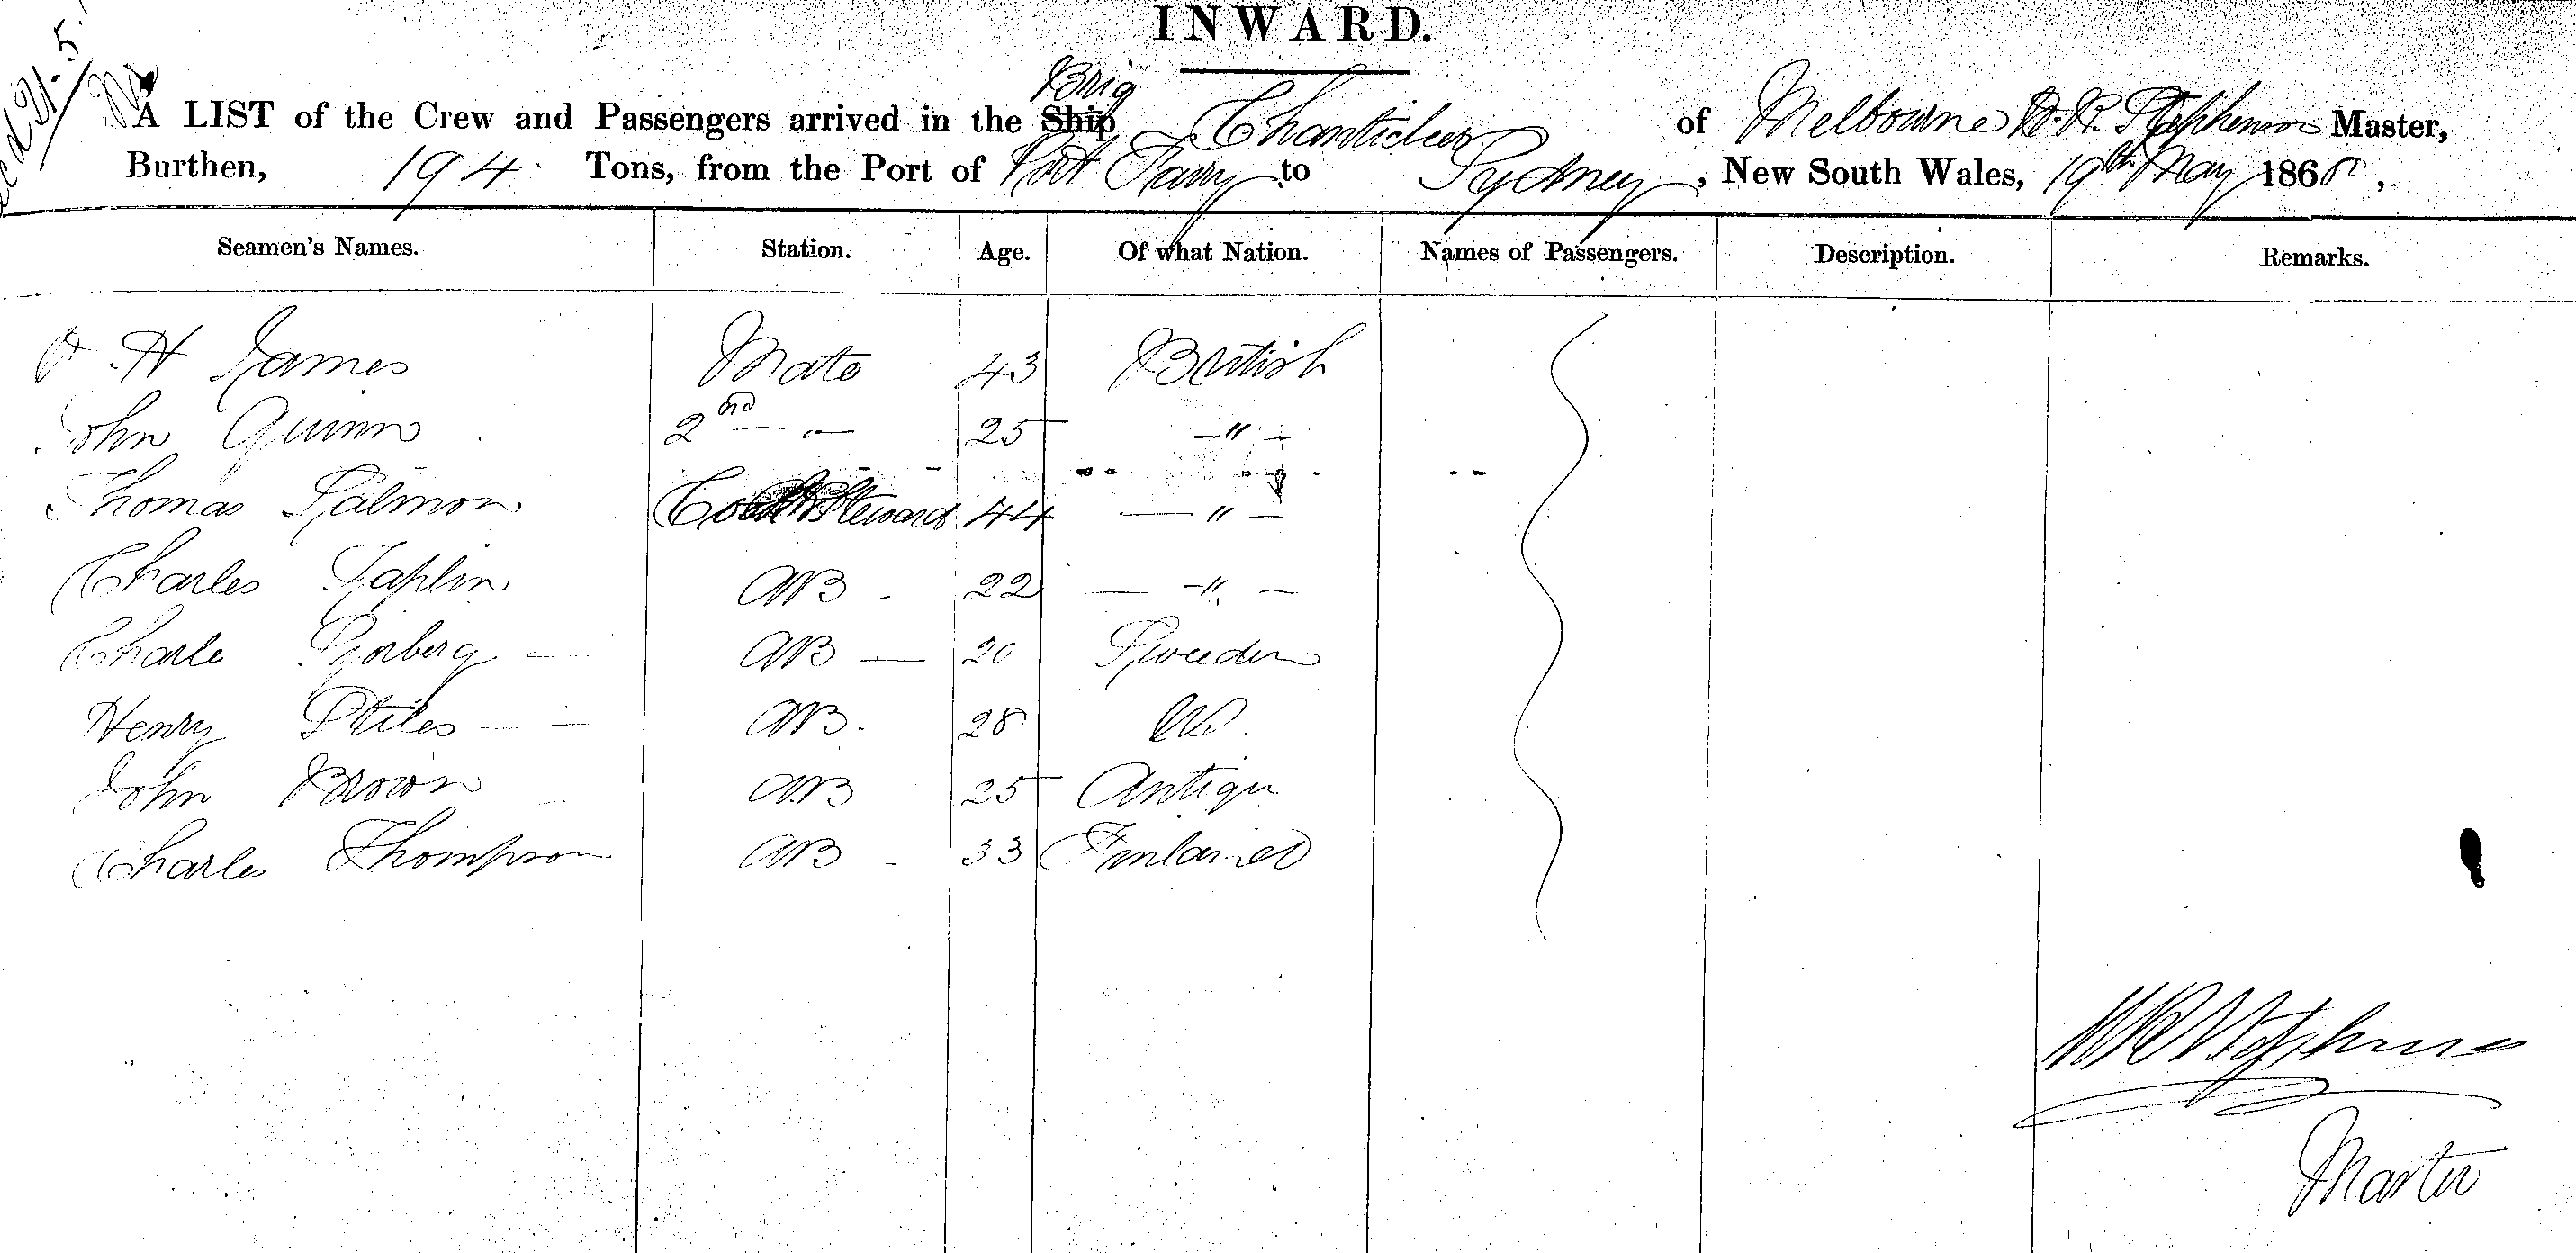 INWARD.
Brig
A LIST of the Crew and Passengers arrived in the Ship Chanticleer of Melbourne Stephenson Master,
Burthen, 194 Tons, from the Port of Port Fairy to Sydney, New South Wales, 19th May 186
Seamen's Names. Station. Age. Of what Nation. Names of Passengers. Description. Remarks.
H James Mate 43 British
John Quinn 2nd — " — 25 — " —
Thomas Salmon Steward 44 — " —
Charles Taplin AB 22 — " —
Charle AB — 20 Sweeden
Henry Stiles AB. 28
John Brown AB 25 Antigu
Charles Thompson AB 33 Finland
Master